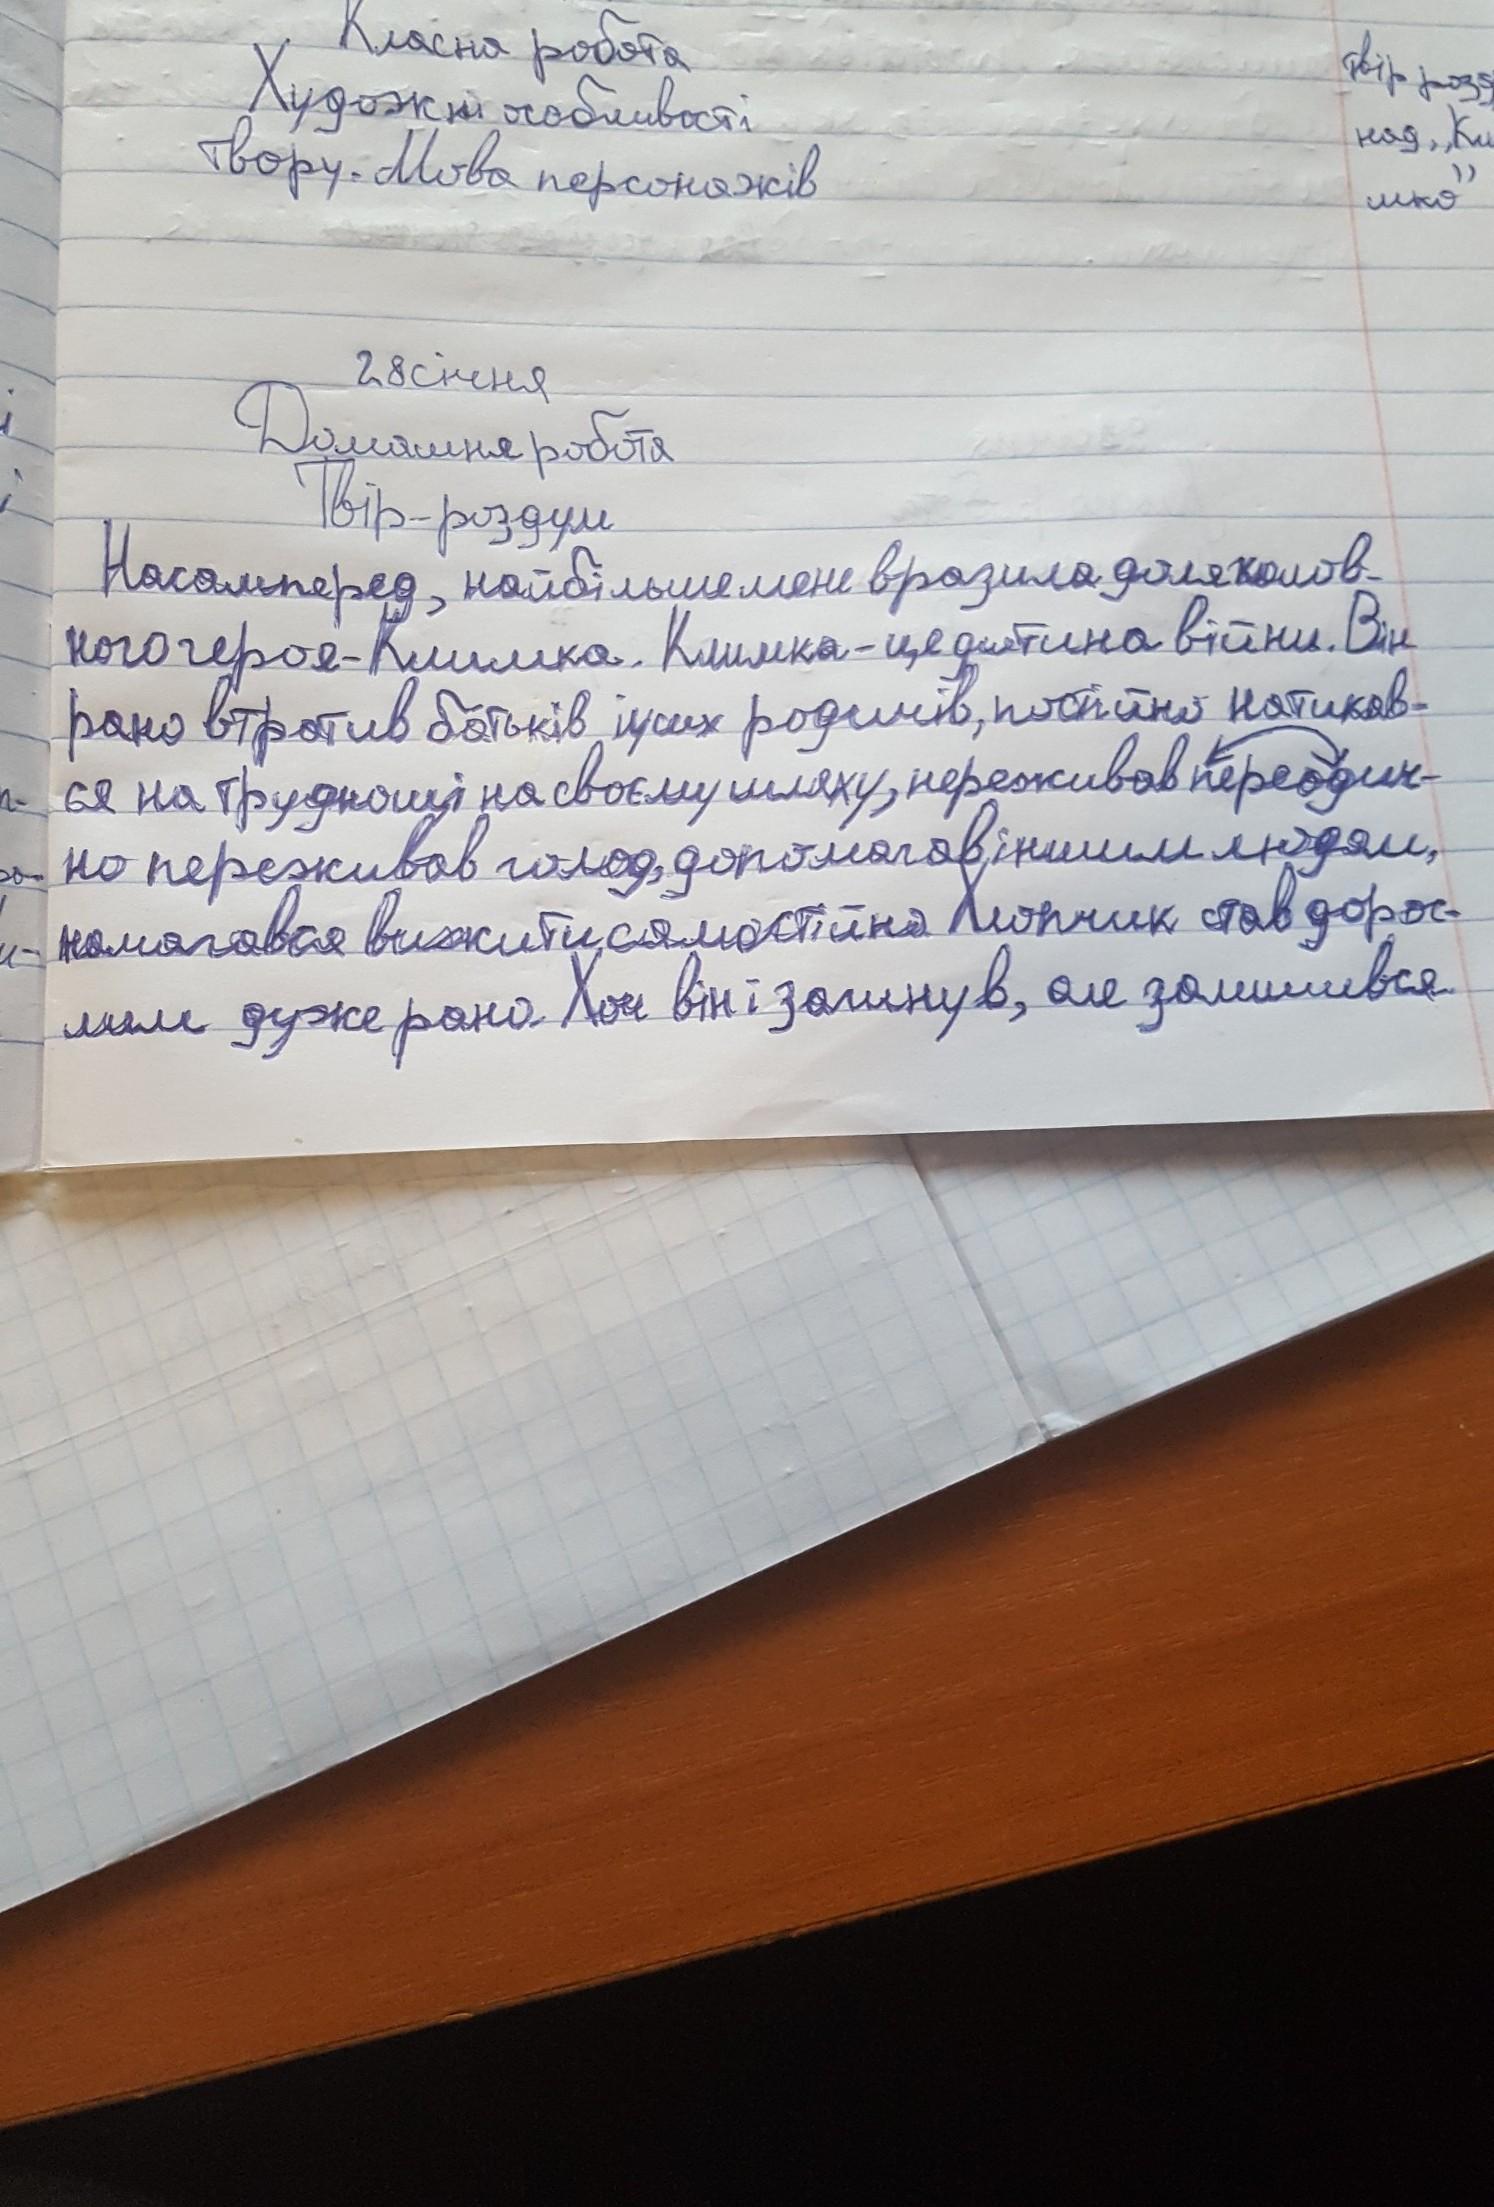 Класна робота
Художні особливості
твору. Мова персонажів
твір розд
над „Кли
мко"
28 січня
Домашня робота
Твір-роздум
Насамперед, найбільше мене вразила доля голов-
ного героя-Климка. Климка-це дитина війни. Він
рано втратив батьків і усіх родичів, постійно натикав-
ся на труднощі на своєму шляху, переживав періодич-
но переживав голод, допомагав іншим людям,
намагався вижити самостійно Хлопчик став дорос-
лим дуже рано. Хоч він і загинув, але залишився